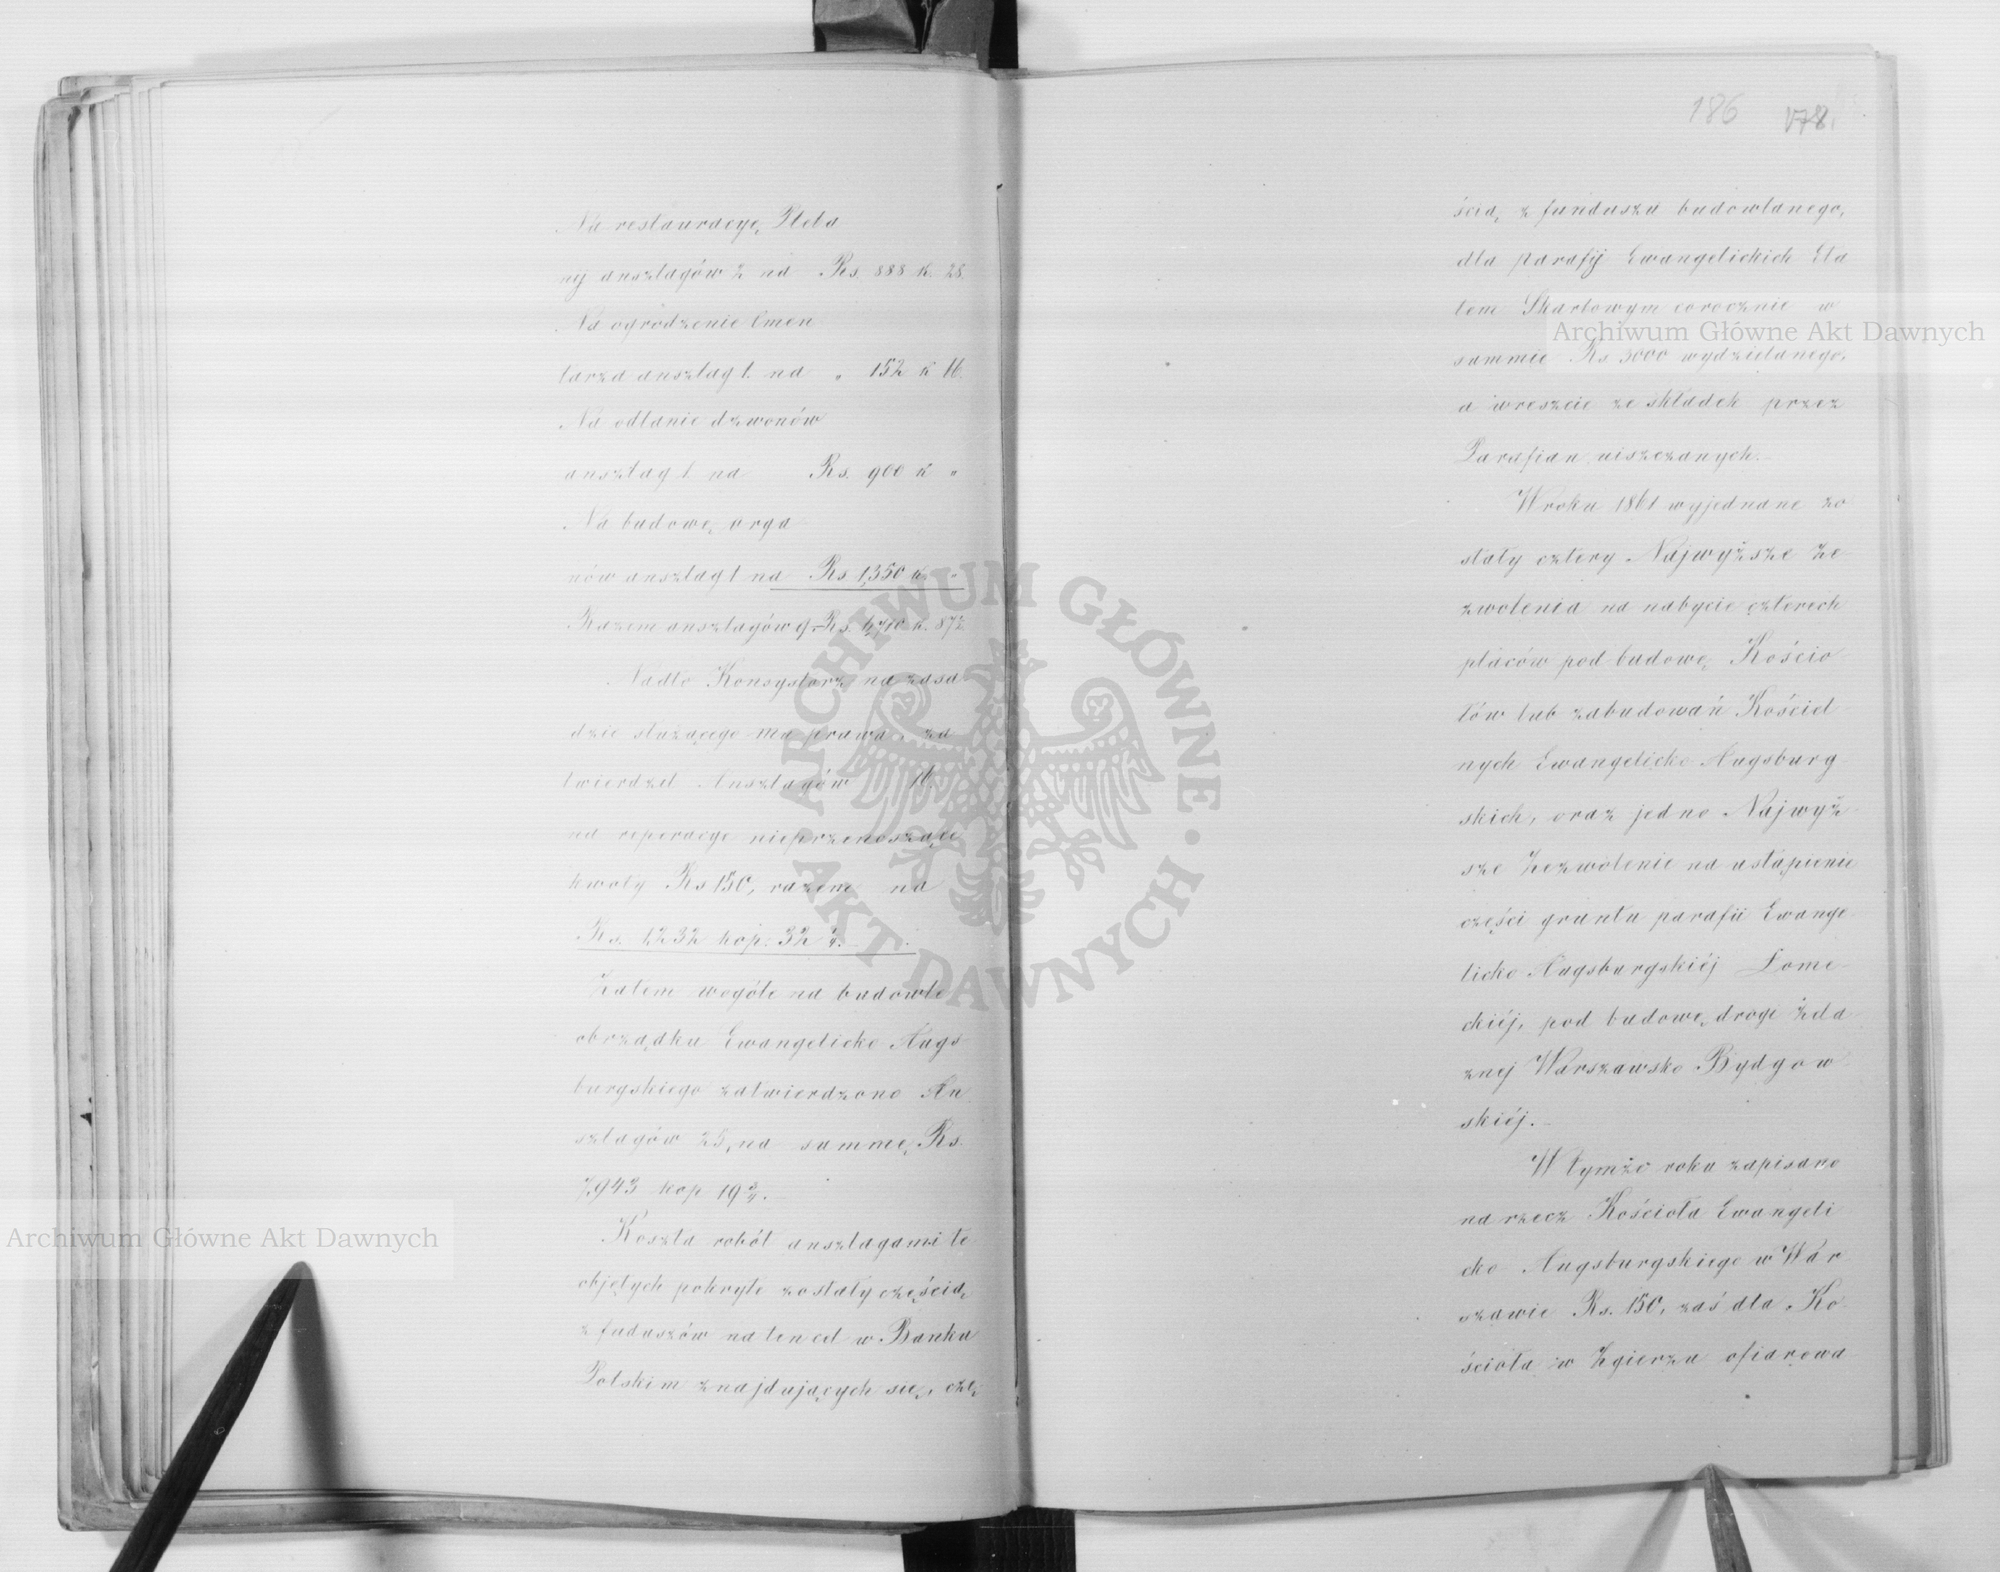 Na restauracyę Pleba
nij anszlagów 2 na Rs. 888 k. 28.
Na ogrodzenie Cmen
tarza anszlag 1. na „ 152 k 16.
Na odlanie dzwonów
anszlag 1 na Rs. 900 k „
Na budowę orga
nów anszlag 1 na Rs 1,350 k. „
Razem anszlagów 9.- Rs. 6,710 k. 87½
Nadto Konsystorz na zasa
dzie służącego mu prawa, za
twierdził Anszlagów 16.
na reperacye nieprzenoszące
kwoty Rs 150, razem na
Rs. 1232 kop. 32 ¼.
Zatem wogóle na budowle
obrządku Ewangelicko Augs
burgskiego zatwierdzono An
szlagów 25, na summę Rs.
7,943 kop 19 ¾.
Koszta robót anszlagami te
objętych pokryte zostały częścią
z fuduszów na ten cel w Banku
Polskim znajdujących się, czę
186 178
ścią z funduszu budowlanego,
dla parafij Ewangelickich Eta
tem Skarbowym corocznie w
summie Rs 3000 wydzielanego,
a wreszcie ze składek przez
Parafian uiszczanych.
W roku 1861 wyjednane zo
stały cztery Najwyższe Ze
zwolenia na nabycie czterech
placów pod budowę Kościo
łów lub zabudowań Kościel
nych Ewangelicko-Augsburg
skich, oraz jedno Najwyż
sze Zezwolenie na ustąpienie
części gruntu parafii Ewange
licko Augsburgskiéj Łome
ckiéj, pod budowę drogi Żela
znej Warszawsko Bydgow
skiéj.
W tymże roku zapisano
na rzecz Kościoła Ewangeli
cko Augsburgskiego w War
szawie Rs. 150, zaś dla Ko
ścioła w Zgierzu ofiarowa
Archiwum Główne Akt Dawnych
Archiwum Główne Akt Dawnych
ARCHIWUM GŁÓWNE · AKT DAWNYCH ·